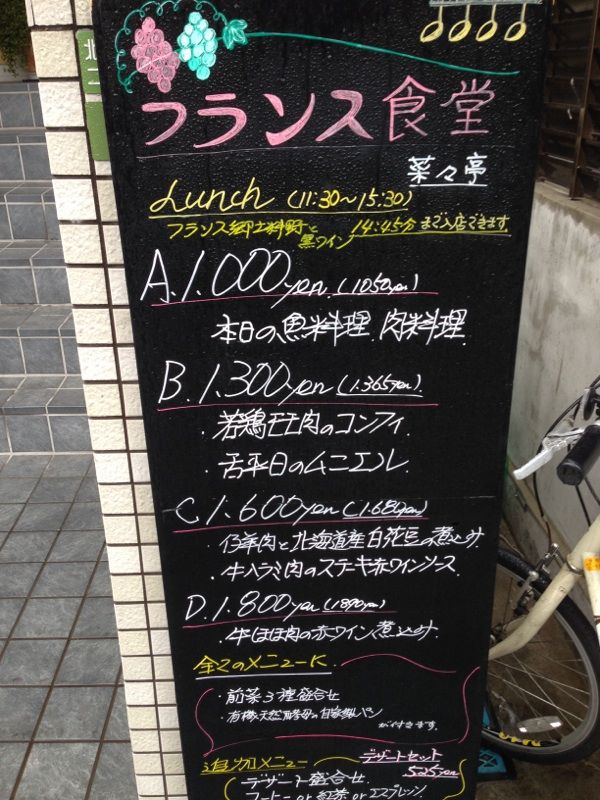 フランス食堂
菜々亭
Lunch (11:30〜15:30)
フランス郷土料理と
黒ワイン 14:45分まで入店できます
A. 1.000yen (1050yen)
本日の魚料理 肉料理
B. 1.300yen (1.365yen)
・若鶏モモ肉のコンフィ
・舌平目のムニエル
C 1.600yen (1.680yen)
・仔羊肉と北海道産白花豆の煮込み
・牛ハラミ肉のステーキ赤ワインソース
D. 1.800yen (1890yen)
・牛ほほ肉の赤ワイン煮込み
全てのメニューに
・前菜3種盛合せ
・有機天然酵母の自家製パン
がつきます。
追加メニュー
デザートセット
525yen
デザート盛合せ
コーヒー or 紅茶 or エスプレッソ